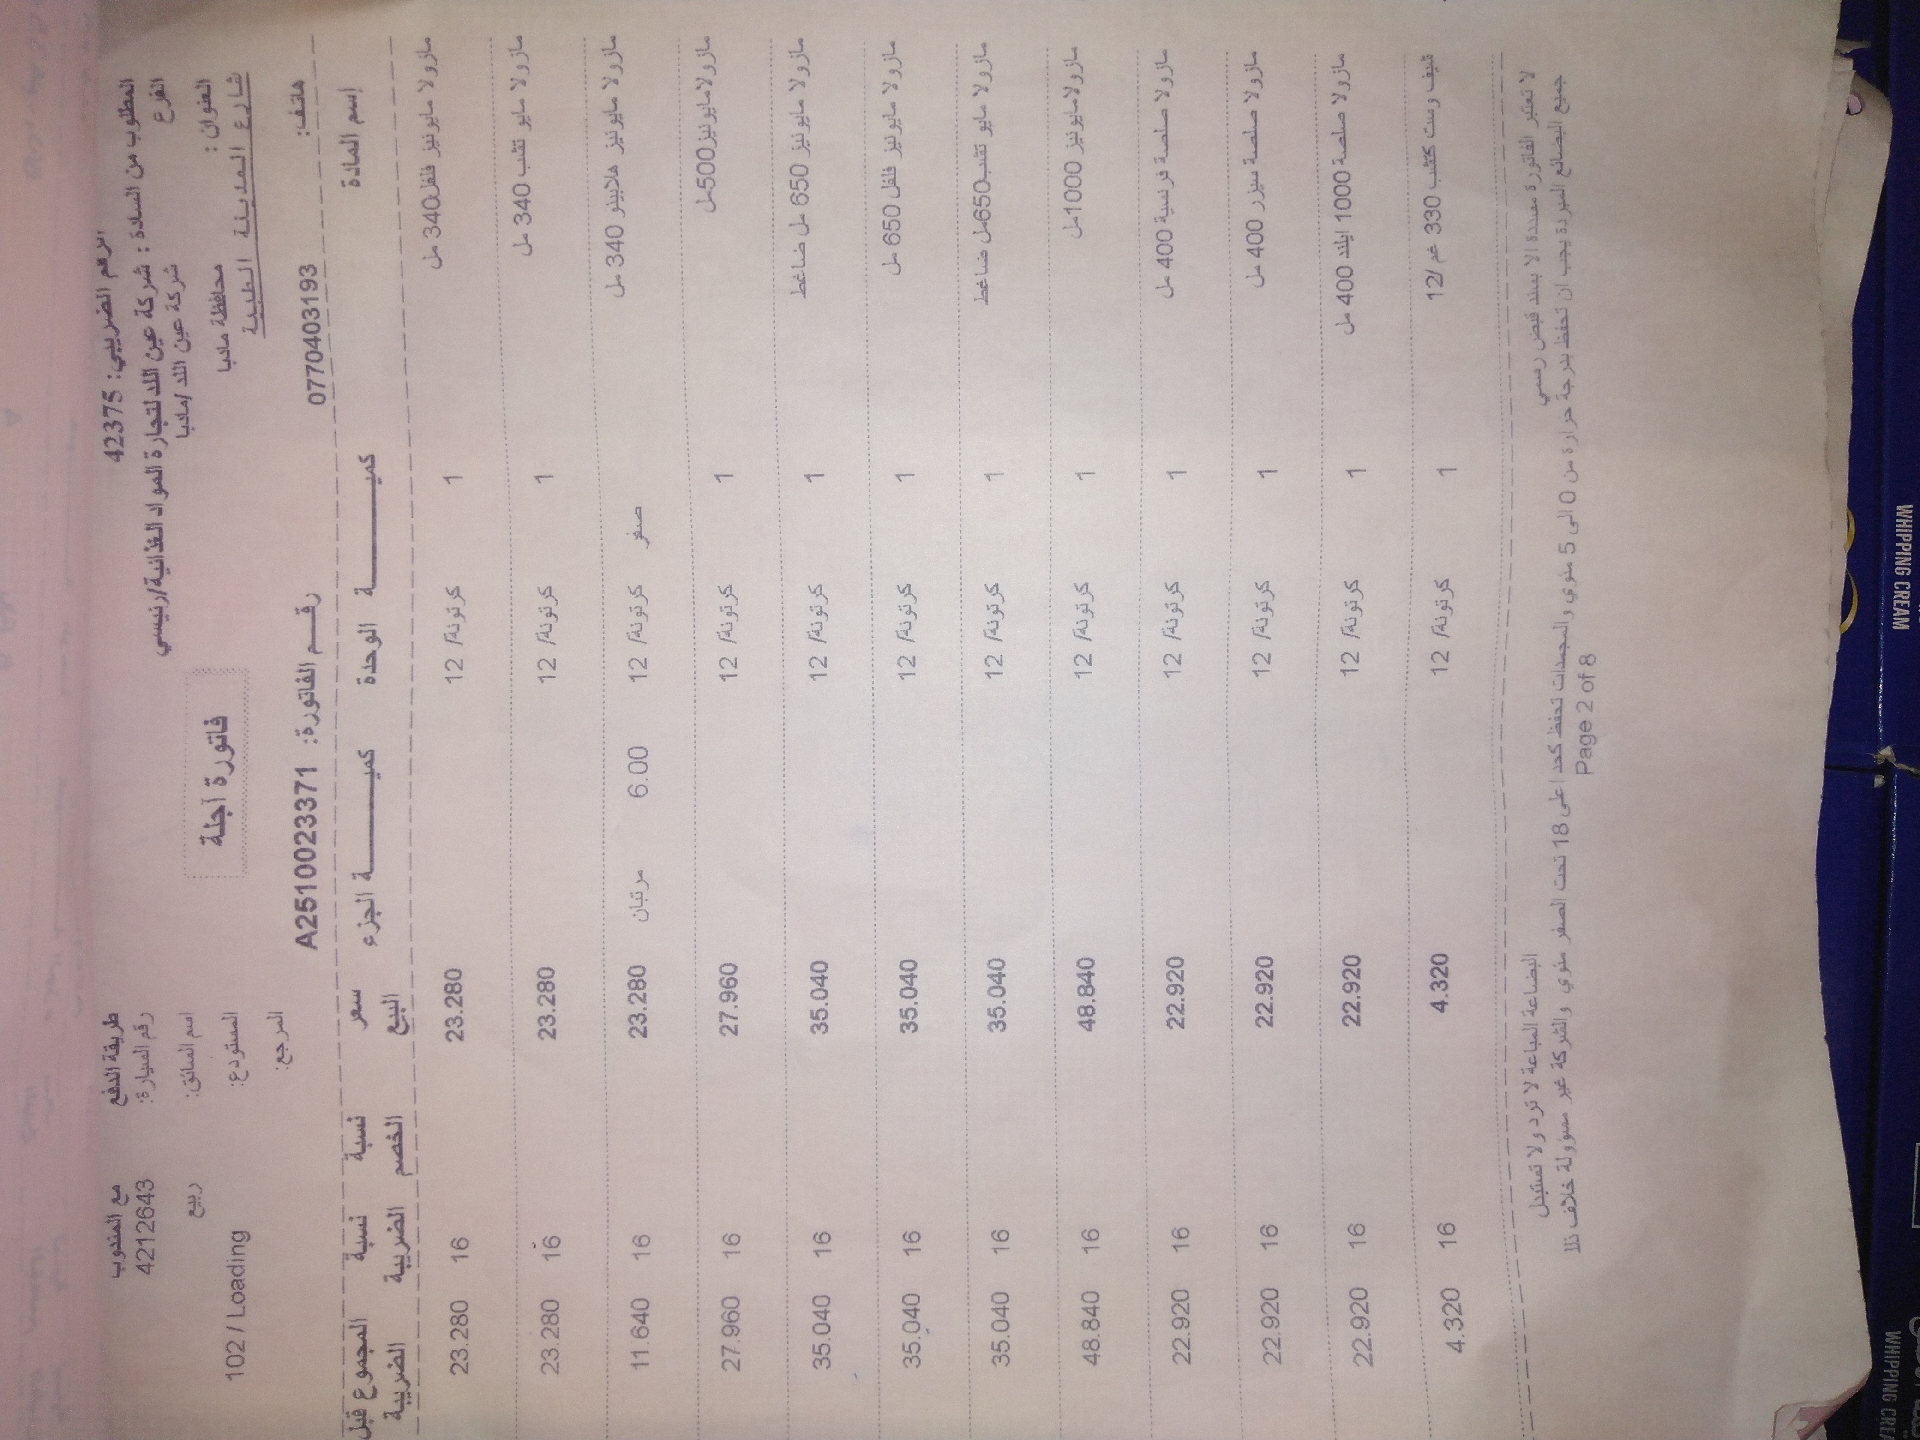 الرقم الضريبي: 42375
المطلوب من السادة : شركة عين اللد لتجارة المواد الغذائية/رئيسي
الفرع شركة عين اللد /مادبا
العنوان : محافظة مادبا
شارع المدينة الطبية
هاتف: 0770403193
فاتورة آجلة
رقم الفاتورة: A2510023371
طريقة الدفع مع المندوب
رقم السيارة: 4212643
اسم السائق: ربيع
المستودع: 102 / Loading
المرجع:
إسم المادة كميـــــــة الوحدة كميـــــــة الجزء سعر البيع نسبة الخصم نسبة الضريبة المجموع قبل الضريبة
مازولا مايونيز فلفل340 مل 1 كرتونة/ 12 23.280 16 23.280
مازولا مايو تقشب 340 مل 1 كرتونة/ 12 23.280 16 23.280
مازولا مايونيز هلابينو 340 مل صفر كرتونة/ 12 6.00 مرتبان 23.280 16 11.640
مازولامايونيز500مل 1 كرتونة/ 12 27.960 16 27.960
مازولا مايونيز 650 مل ضاغط 1 كرتونة/ 12 35.040 16 35.040
مازولا مايونيز فلفل 650 مل 1 كرتونة/ 12 35.040 16 35.040
مازولا مايو تقشب650مل ضاغط 1 كرتونة/ 12 35.040 16 35.040
مازولامايونيز 1000مل 1 كرتونة/ 12 48.840 16 48.840
مازولا صلصة فرنسية 400 مل 1 كرتونة/ 12 22.920 16 22.920
مازولا صلصة سيزر 400 مل 1 كرتونة/ 12 22.920 16 22.920
مازولا صلصة 1000 ايلاند 400 مل 1 كرتونة/ 12 22.920 16 22.920
شيف وست كتشب 330 غم /12 1 كرتونة/ 12 4.320 16 4.320
لا تعتبر الفاتورة مسددة الا بسند قبض رسمي البضاعة المباعة لا ترد ولا تستبدل
جميع البضائع المبردة يجب ان تحفظ بدرجة حرارة من 0 الى 5 مئوي والمجمدات تحفظ كحد اعلى 18 تحت الصفر مئوي والشركة غير مسؤولة خلاف ذلك
Page 2 of 8
WHIPPING CREAM
WHIPPING CREA